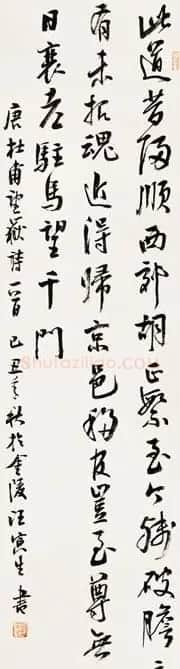 此道昔歸順西郊胡正繁至今殘破膽
有未招魂近得歸京邑移官豈至尊無
日衰老駐馬望千門
唐杜甫望嶽詩一首 己丑之秋於金陵汪寅生書